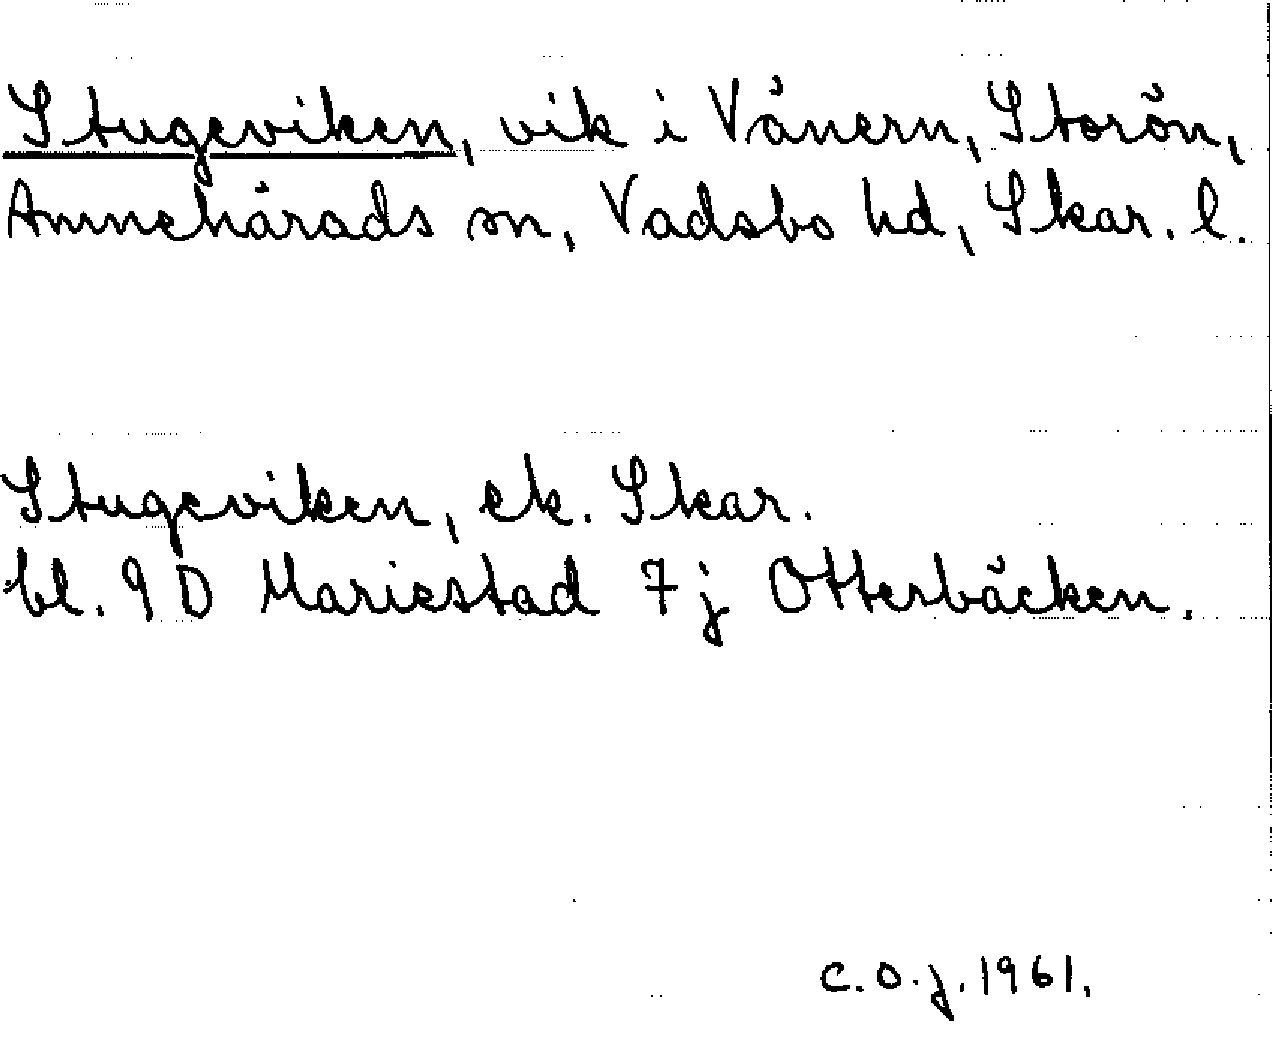 Stugeviken, vik i Vänern, Storön,
Amnehärads sn, Vadsbo hd, Skar. l.
Stugeviken, ek. Skar.
bl. 9 D Mariestad 7 j Otterbäcken.
C.O.J. 1961.